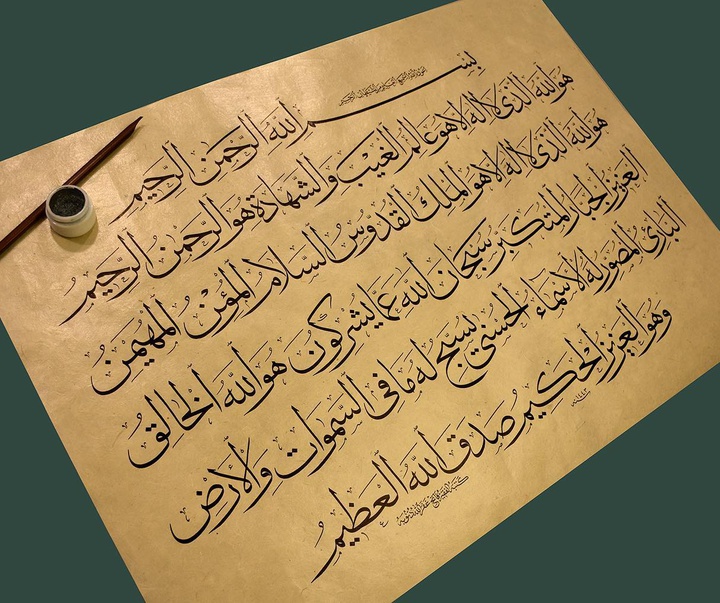 بسم الله الرحمن الرحيم
هو الله الذى لا اله الا هو عالم الغيب والشهادة هو الرحمن الرحيم
هو الله الذى لا اله الا هو الملك القدوس السلام المؤمن المهيمن
العزيز الجبار المتكبر سبحان الله عما يشركون هو الله الخالق
البارئ المصور له الاسماء الحسنى يسبح له ما فى السموات والأرض
وهو العزيز الحكيم صدق الله العظيم